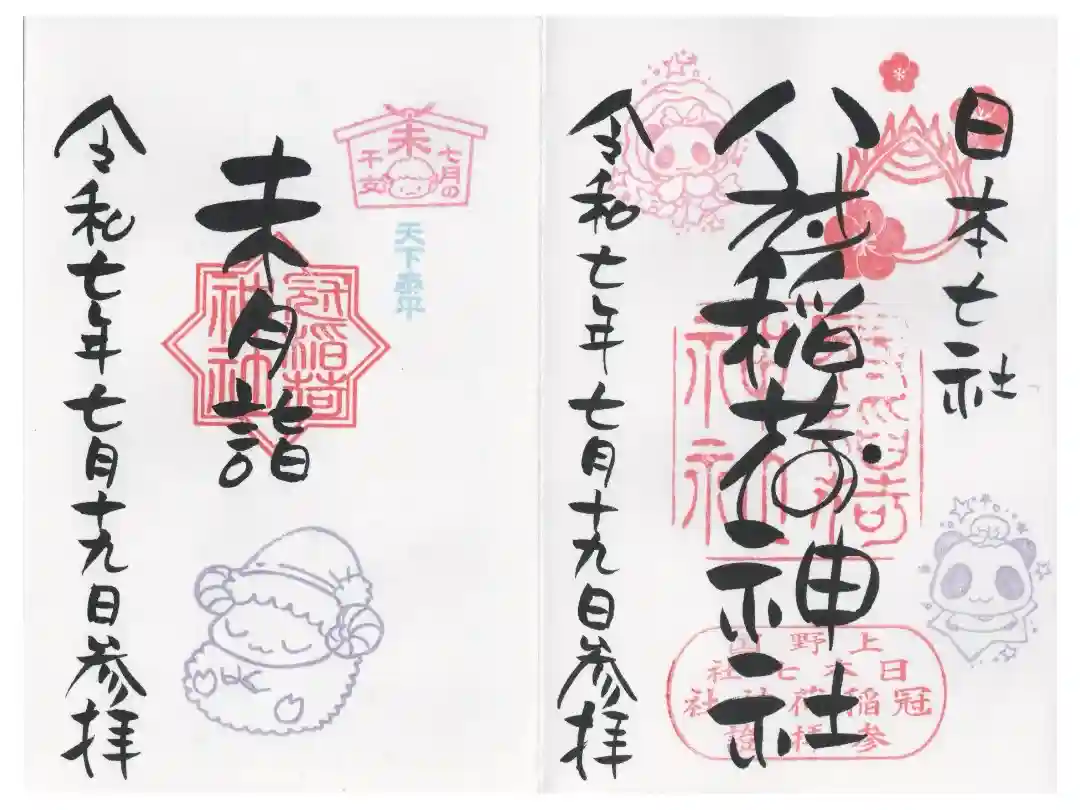 日本七社
冠稲荷神社
冠稲荷
神社
上野国
日本七社
冠稲荷神社
参拝證
令和七年七月十九日参拝
未
七月の
干支
天下泰平
未月詣
冠稲荷
神社
令和七年七月十九日参拝